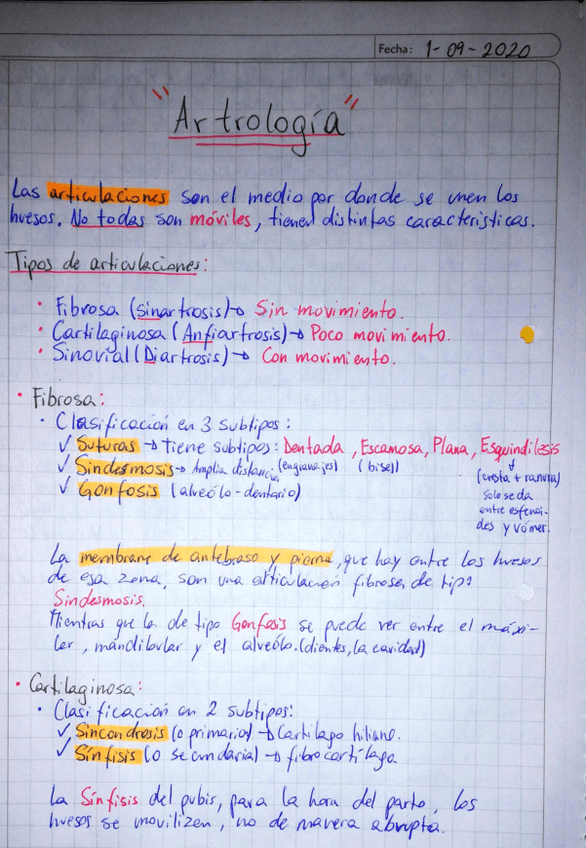 Fecha: 1-09-2020
"Artrología"
Las articulaciones son el medio por donde se unen los
huesos. No todas son móviles, tienen distintas caracteristicas.
Tipos de articulaciones:
• Fibrosa (Sinartrosis)→ Sin movimiento.
• Cartilaginosa (Anfiartrosis)→ Poco movimiento.
• Sinovial (Diartrosis)→ Con movimiento.
• Fibrosa:
• Clasificación en 3 subtipos:
✓ Suturas → Tiene subtipos: Dentada, Escamosa, Plana, Esquindilesis
✓ Sindesmosis→ Amplia distancia (engranajes) (bisel) (cresta + ranura)
✓ Gonfosis (alveólo-dentario) solo se da
entre esfenoi-
des y vómer.
La membrana de antebraso y pierna, que hay entre los huesos
de esa zona, son una articulación fibrosa de tipo
Sindesmosis.
Mientras que la de tipo Gonfosis se puede ver entre el máxi-
lar, mandibular y el alveólo. (dientes, la cavidad)
• Cartilaginosa:
• Clasificación en 2 subtipos:
✓ Sincondrosis (o primaria)→ Cartilago hiliano.
✓ Sínfisis (o secundaria)→ fibrocartílago.
La Sínfisis del pubis, para la hora del parto, los
huesos se movilizen, no de manera abrupta.